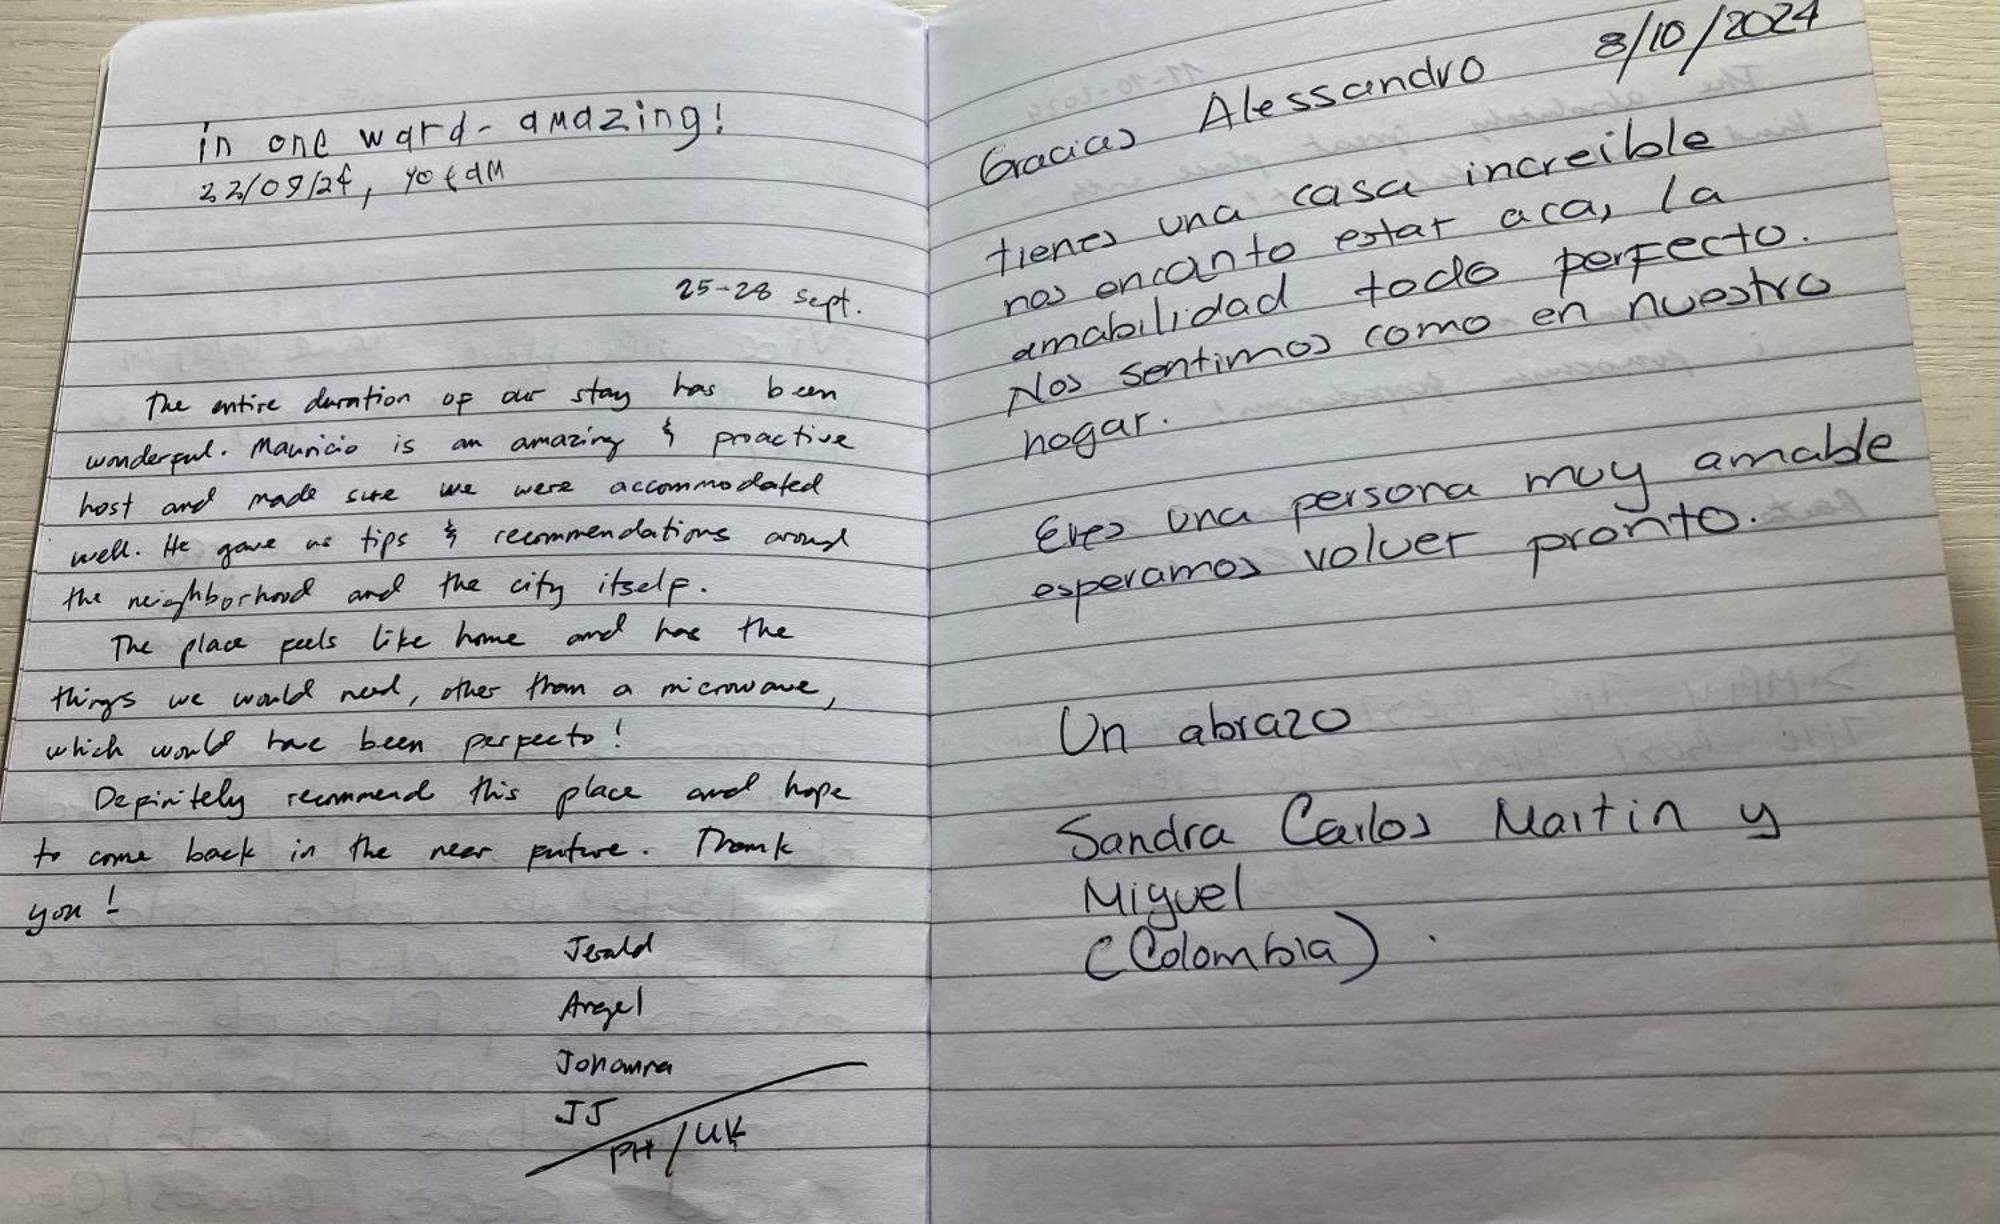 in one word - amazing!
22/09/24, yotam
25-28 Sept.
The entire duration of our stay has been
wonderful. Mauricio is an amazing & proactive
host and made sure we were accommodated
well. He gave us tips & recommendations around
the neighborhood and the city itself.
The place feels like home and has the
things we would need, other than a microwave,
which would have been perfecto!
Definitely recommend this place and hope
to come back in the near future. Thank
you!
Jerald
Angel
Johanna
JJ
PH / UK
8/10/2024
Gracias Alessandro
tienes una casa increible
nos encanto estar aca, la
amabilidad todo perfecto.
Nos sentimos como en nuestro
hogar.
Eres una persona muy amable
esperamos volver pronto.
Un abrazo
Sandra Carlos Martin y
Miguel
(Colombia).